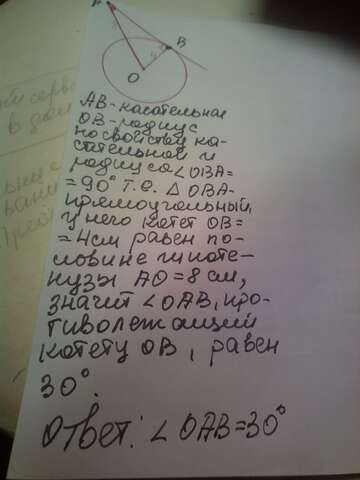 A
B
O
AB-касательная
OB-радиус
по свойству ка-
сательной и
радиуса ∠OBA=
=90° т.е. △ OBA-
прямоугольный,
у него катет OB=
=4см равен по-
ловине гипоте-
нузы AO=8см,
значит ∠OAB, про-
тиволежащий
катету OB, равен
30°.
Ответ: ∠OAB=30°